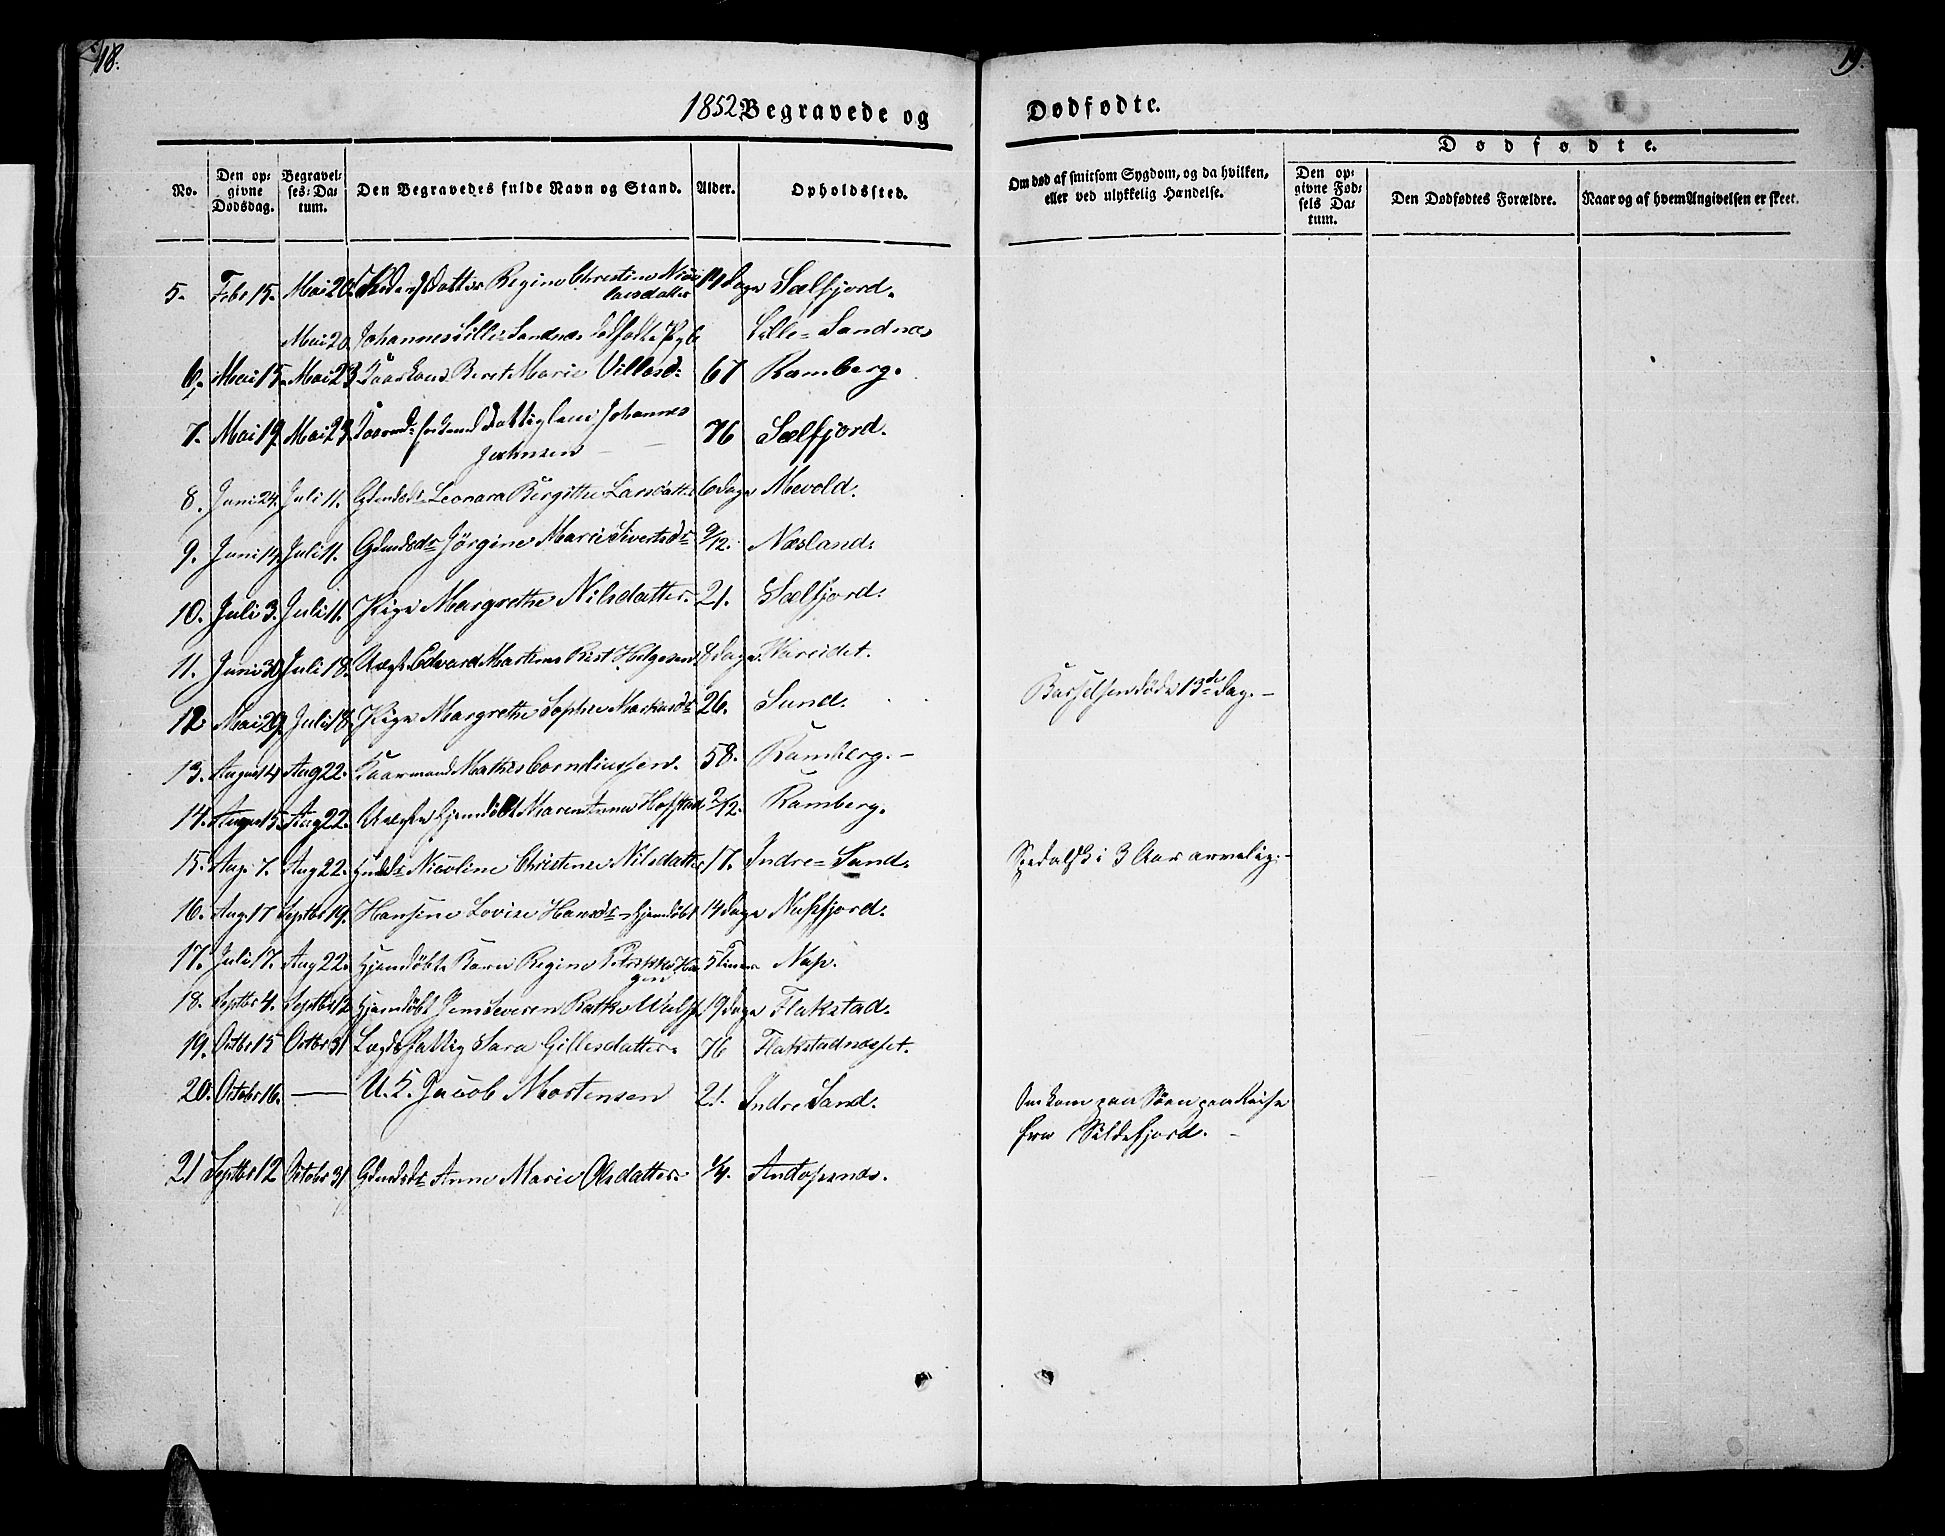 18.
19.
1852 Begravede og Dødfødte.
Dødfødte.
No.
Den opgivne Dødsdag.
Begravelses-Datum.
Den Begravedes fulde Navn og Stand.
Alder.
Opholdssted.
Om død af smitsom Sygdom, og da hvilken, eller ved ulykkelig Hændelse.
Den opgivne Fødsels Datum.
Den Dødfødtes Forældre.
Naar og af hvem Angivelsen er skeet.
5. Febr 15. Mai 20. Regine Christine 14 Dage Sælfjord.
Mai 20 Johannes Lille-Sandnæs Lille-Sandnæs
6. Mai 15. Mai 23. Beret Marie 67 Ramberg.
7. Mai 19. Mai 23. Johannes 76 Sælfjord.
8. Juni 24. Juli 11. Leonara Birgitte Larsdatter 6 Dage Mevold.
9. Juni 14. Juli 11. Jörgine Marie Sivertsdr 9/12. Næsland.
10. Juli 3. Juli 11. Pige Margrethe Nilsdatter. 21. Sælfjord.
11. Juni 30. Juli 18. Edvard Martinus Rist Helgesen 8 Dage Vareidet.
12 Mai 29. Juli 18. Pige Margrethe Sophie Markusdr 26. Sund. Barselsen døde 13de Dag.-
13. August 14 Aug 22. Kaarmand Mathis Corneliussen. 58. Ramberg.-
14. August 15. Aug 22. hjemdöbt Maren Anna 9/12. Ramberg.
15. Aug. 7. Aug 22. Nicoline Christense Nilsdatter 17. Indre-Sand. Spedalsk i 3 Aar arvelig.-
16. Aug. 17 Septbr 19. Hansine Lovise Hansdr - hjemdöbt 14 Dage Nusfjord.
17. Juli 17. Aug 22. hjemdöbt Karen Regine 5 Timer Nap.
18. Septbr 4. Septbr 12 hjemdöbt Jens Severen Ratke 19 Dage Flakstad.
19. Octbr 15 Octbr 31 Lægdsfattig Sara Gillesdatter. 76 Flakstadnæsset.
20. Octobr 16. — U. K. Jacob Mortensen 21. Indre Sand. Omkom paa Söen paa Reise
fra Sildefjord. -
21 Septbr 12 Octobr 31 Anne Marie Olsdatter. 1/4. Andopsnæs.